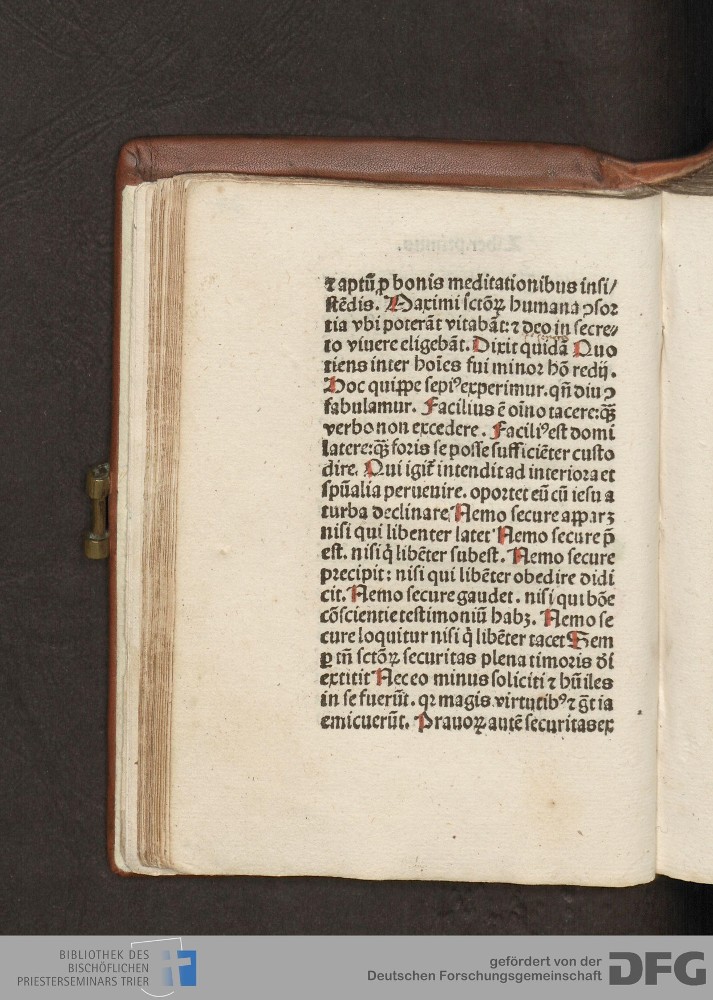 ⁊ aptū ꝓ bonis meditationibus insi/
stēdis. Maximi sctōꝝ humana ꝯsor
tia vbi poterāt vitabāt: ⁊ deo in secre⸗
to viuere eligebāt. Dixit quidā Quo
tiens inter hoīes fui minor hō redij.
Hoc quippe sepiꝰ experimur. qn̄ diu ꝯ
fabulamur. Facilius ē oīno tacere: qȝ̄
verbo non excedere. Faciliꝰ est domi
latere: qȝ̄ foris se posse sufficiēter custo
dire. Qui igit̄ intendit ad interiora et
spūalia peruenire. oportet eū cū iesu a
turba declinare Nemo secure apparȝ
nisi qui libenter latet Nemo secure p̄
est. nisi q̇ libēter subest. Nemo secure
precipit: nisi qui libēter obedire didi
cit. Nemo secure gaudet. nisi qui bōe
cōscientie testimoniū habȝ. Nemo se
cure loquitur nisi q̇ libēter tacet Sem
ꝑ tn̄ sctōꝝ securitas plena timoris dī
extitit Nec eo minus soliciti ⁊ hūiles
in se fuerūt. qꝛ magis virtutibꝰ ⁊ gr̄tia
emicuerūt. Prauoꝝ autē securitas ex
BIBLIOTHEK DES
BISCHÖFLICHEN
PRIESTERSEMINARS TRIER
gefördert von der
Deutschen Forschungsgemeinschaft
DFG